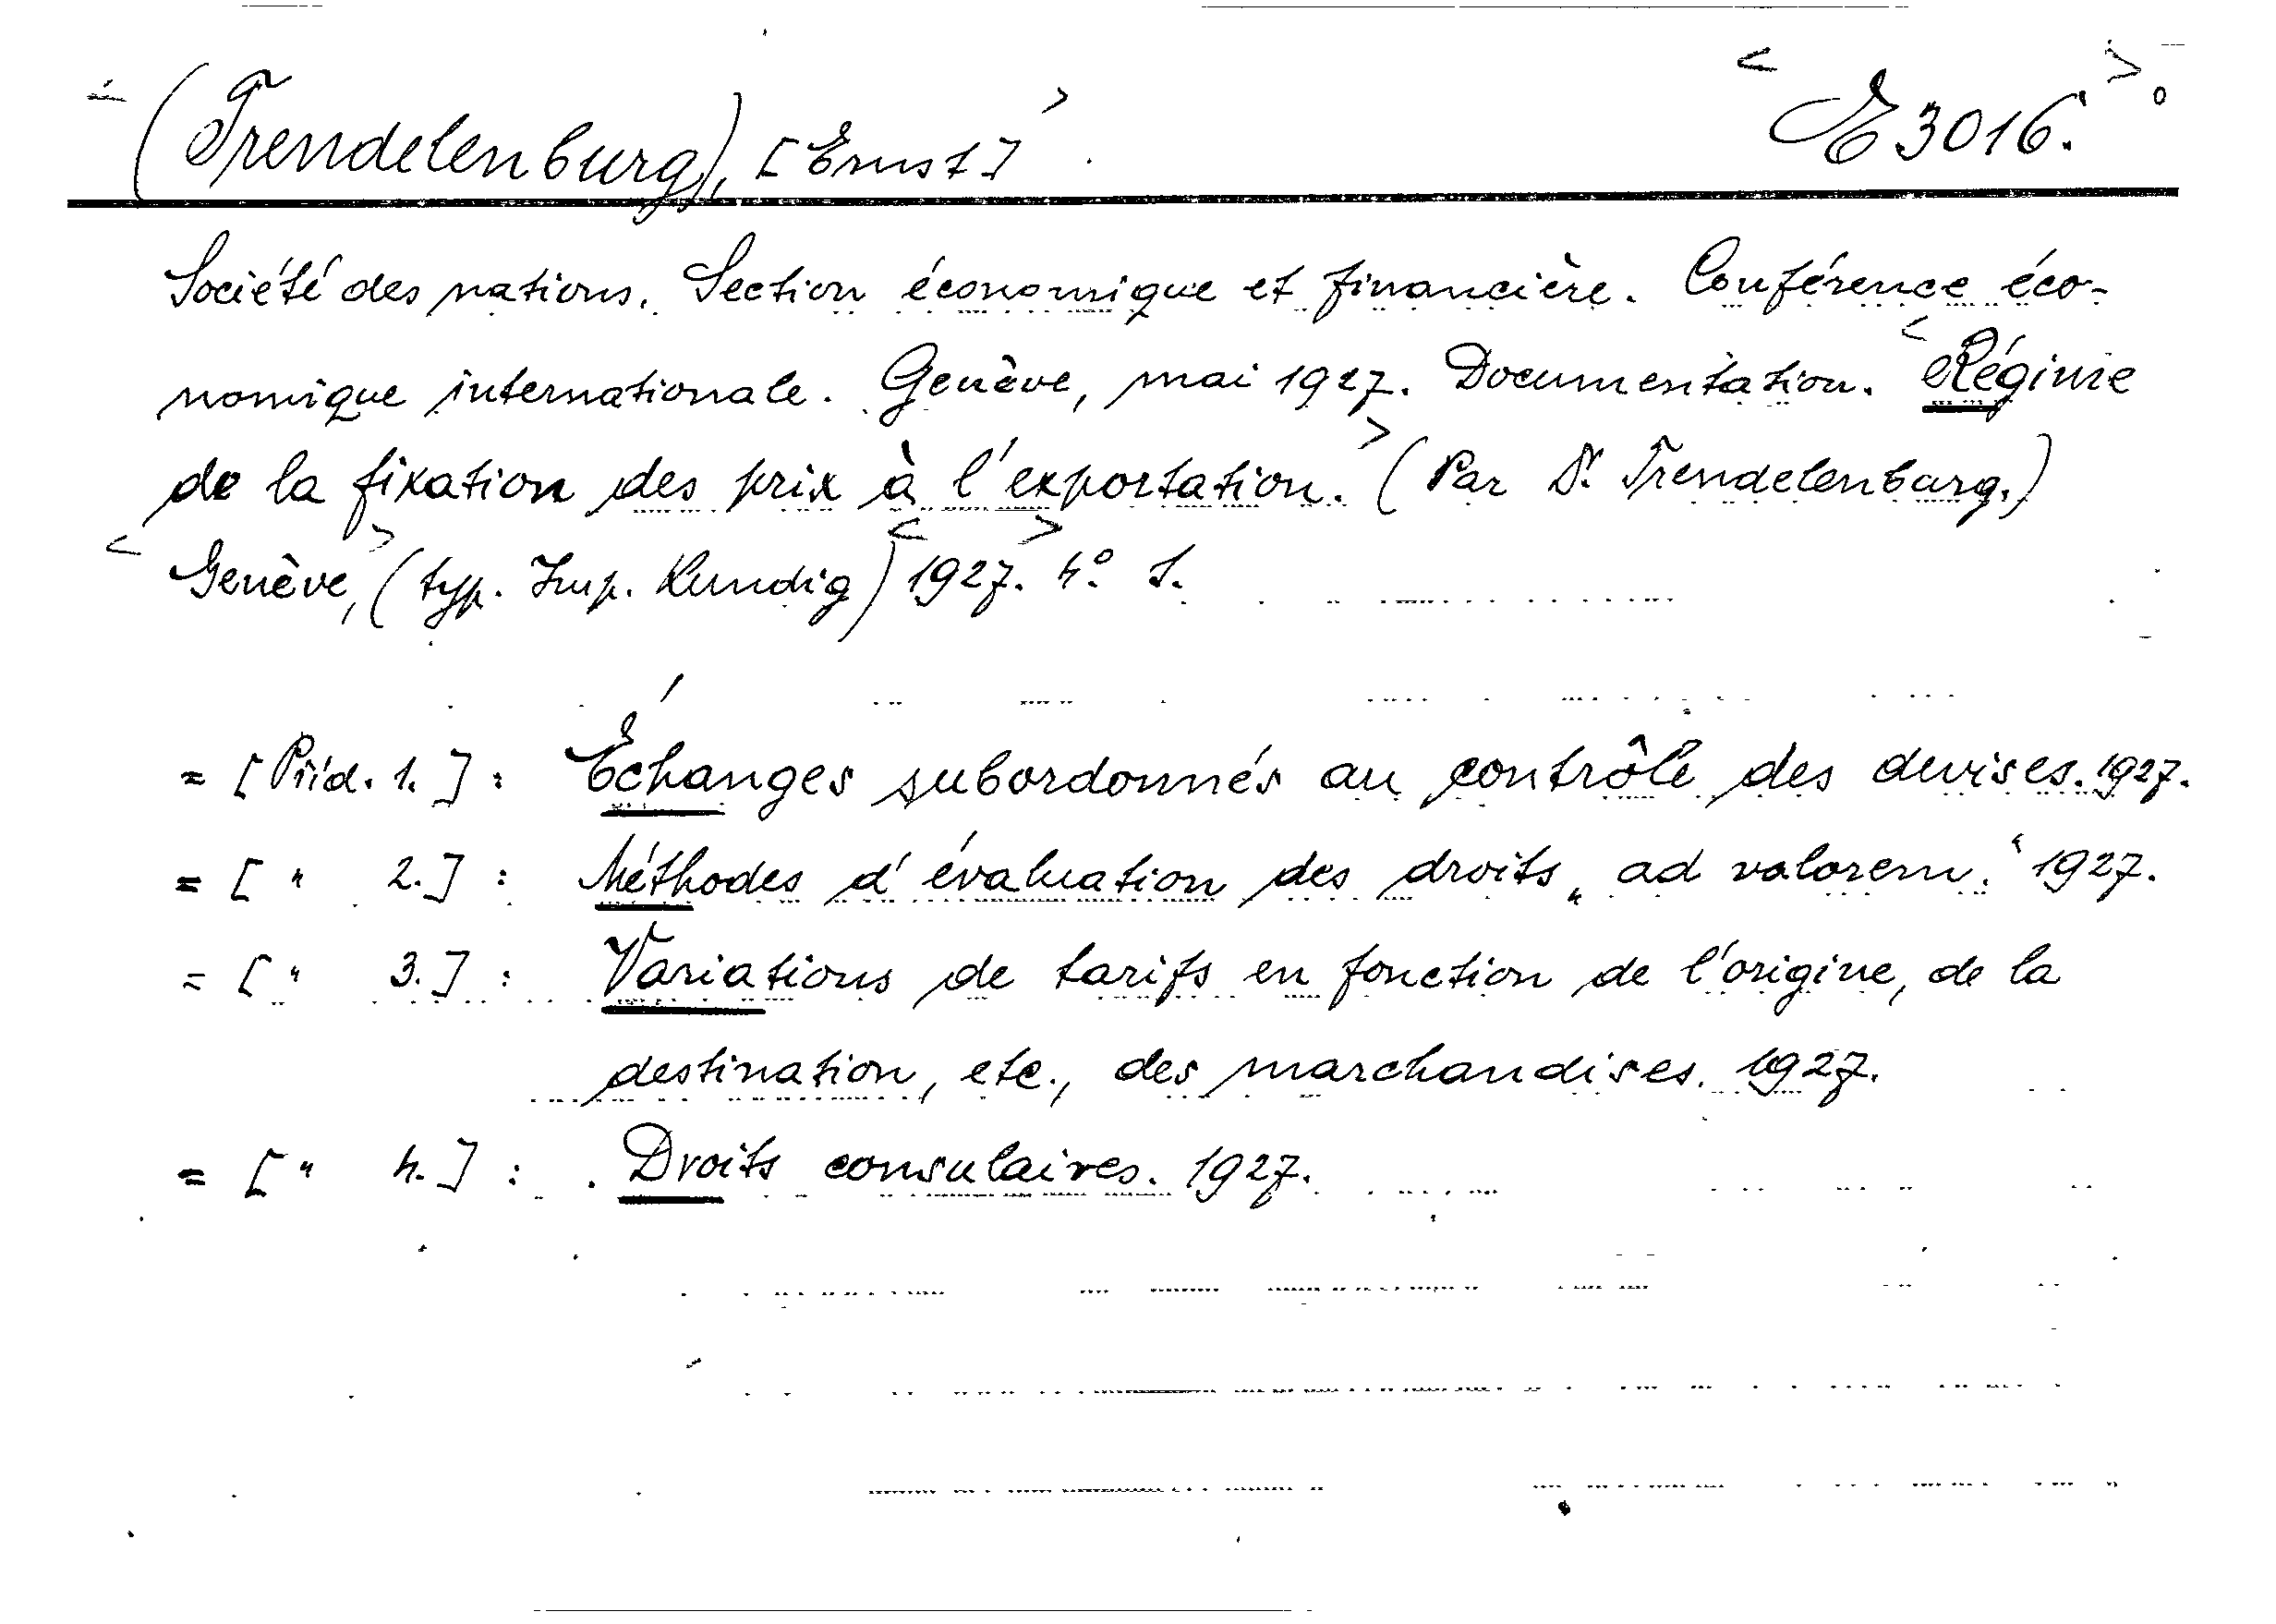 <(Trendelenburg), [Ernst]> <E 3016.>
Société des nations. Section économique et financière. Conférence éco-
nomique internationale. Genève, mai 1927. Documentation. <Régime
de la fixation des prix à l'exportation.> (Par Dr. Trendelenburg.)
<Genève,> (typ. Imp. Kundig) <1927.> 4° 1.
= [Přid. 1.] : Échanges subordonnés au contrôle des devises. 1927.
= [" 2.] : Méthodes d'évaluation des droits „ad valorem.“ 1927.
= [" 3.] : Variations de tarifs en fonction de l'origine, de la
destination, etc., des marchandises. 1927.
= [" 4.] : Droits consulaires. 1927.